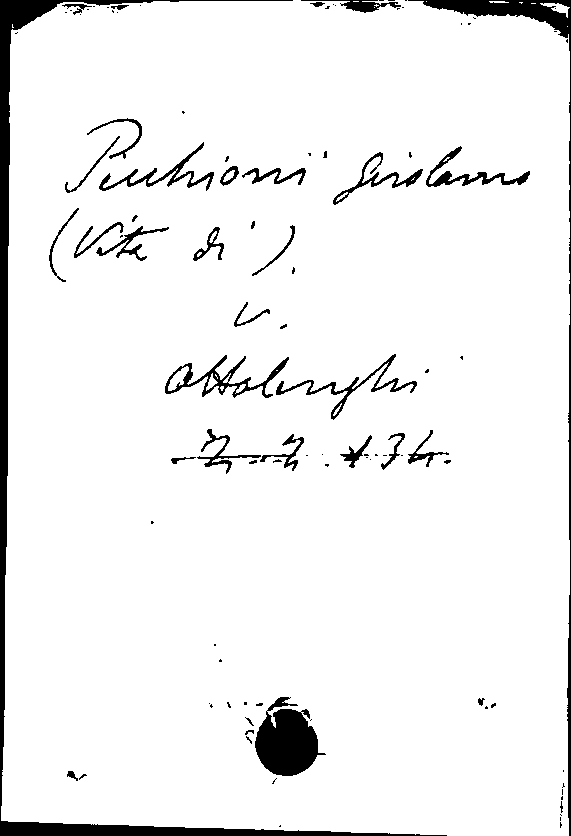 Picchioni Girolamo
(Vita di).
v.
Ottolenghi
Z. Z. 134.